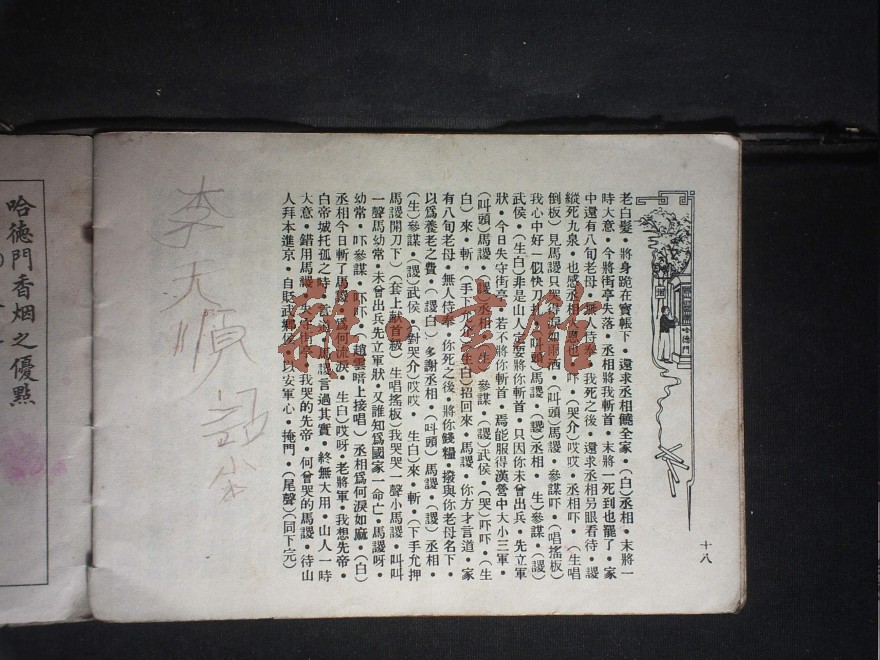 十八
老白髮•將身跪在寶帳下•還求丞相饒全家•(白)丞相•末將一
時大意•今將街亭失落•丞相將我斬首•末將一死到也罷了•家
中還有八旬老母•無人侍奉•我死之後•還求丞相另眼看待•謖
縱死九泉•也感丞相 恩也•吓•(哭介)哎哎•丞相吓•(生唱
倒板)見馬謖只哭得淚如雨洒•(叫頭)馬謖•參謀吓•(唱搖板)
我心中好一似快刀扎•(叫頭)馬謖•(謖)丞相•生)參謀•(謖)
武侯•(生白)非是山人定要將你斬首•只因你未曾出兵•先立軍
狀•今日失守街亭•若不將你斬首•焉能服得漢營中大小三軍•
(叫頭)馬謖•(謖)丞相•(生)參謀•(謖)武侯•(哭)吓吓•(生
白)來•斬•(手下允介)(生白)招回來•馬謖•你方才言道•家
有八旬老母•無人侍奉•你死之後•將你錢糧•撥與你老母名下•
以爲養老之費•(謖白)多謝丞相•(叫頭)馬謖•(謖)丞相•
(生)參謀•(謖)武侯•(對哭介)哎哎•生白)來•斬•(下手允押
馬謖開刀下)(套上献首級)生唱搖板)我哭哭一聲小馬謖•叫叫
一聲馬幼常•未曾出兵先立軍狀•又誰知爲國家一命亡•馬謖呀•
幼常•吓參謀•吓吓•趙雲暗上接唱)丞相爲何淚如麻•(白)
丞相今日斬了馬謖•爲何流淚•生白)哎呀•老將軍•我想先帝•
白帝城托孤之時•言道•馬謖言過其實•終無大用•山人一時
大意•錯用馬謖•失守街亭•我哭的先帝•何曾哭的馬謖•待山
人拜本進京•自貶武鄉侯•以安軍心•掩門•(尾聲)(同下完)
李天順記
哈德門香烟之優點